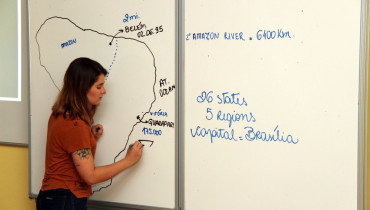 2mi.
BELÉM
02.06.95
AMAZON
AT.
OCEAN
VITÓRIA
GUARAPARI
172.000
2º AMAZON RIVER = 6400 Km.
26 states
5 regions
capital = Brasília